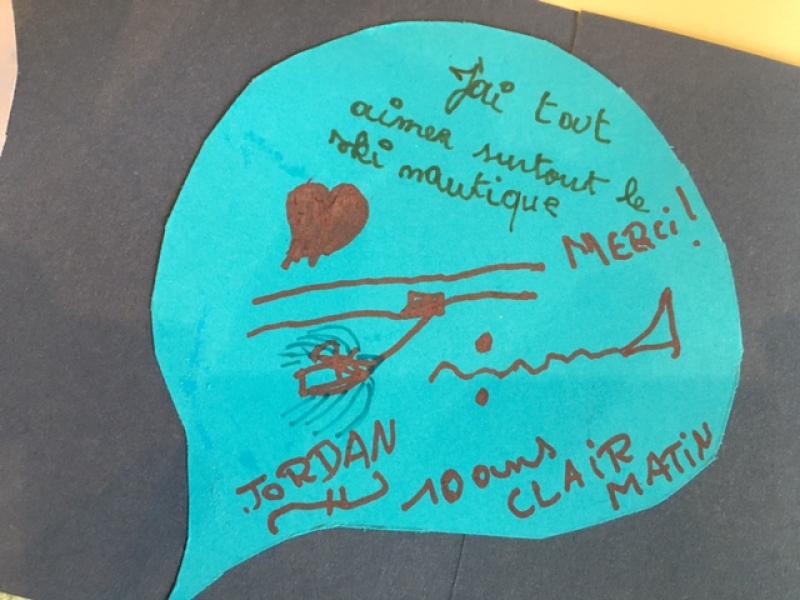 J'ai tout
aimer surtout le
ski nautique
MERCi!
JORDAN 10 ans CLAIR
MATIN